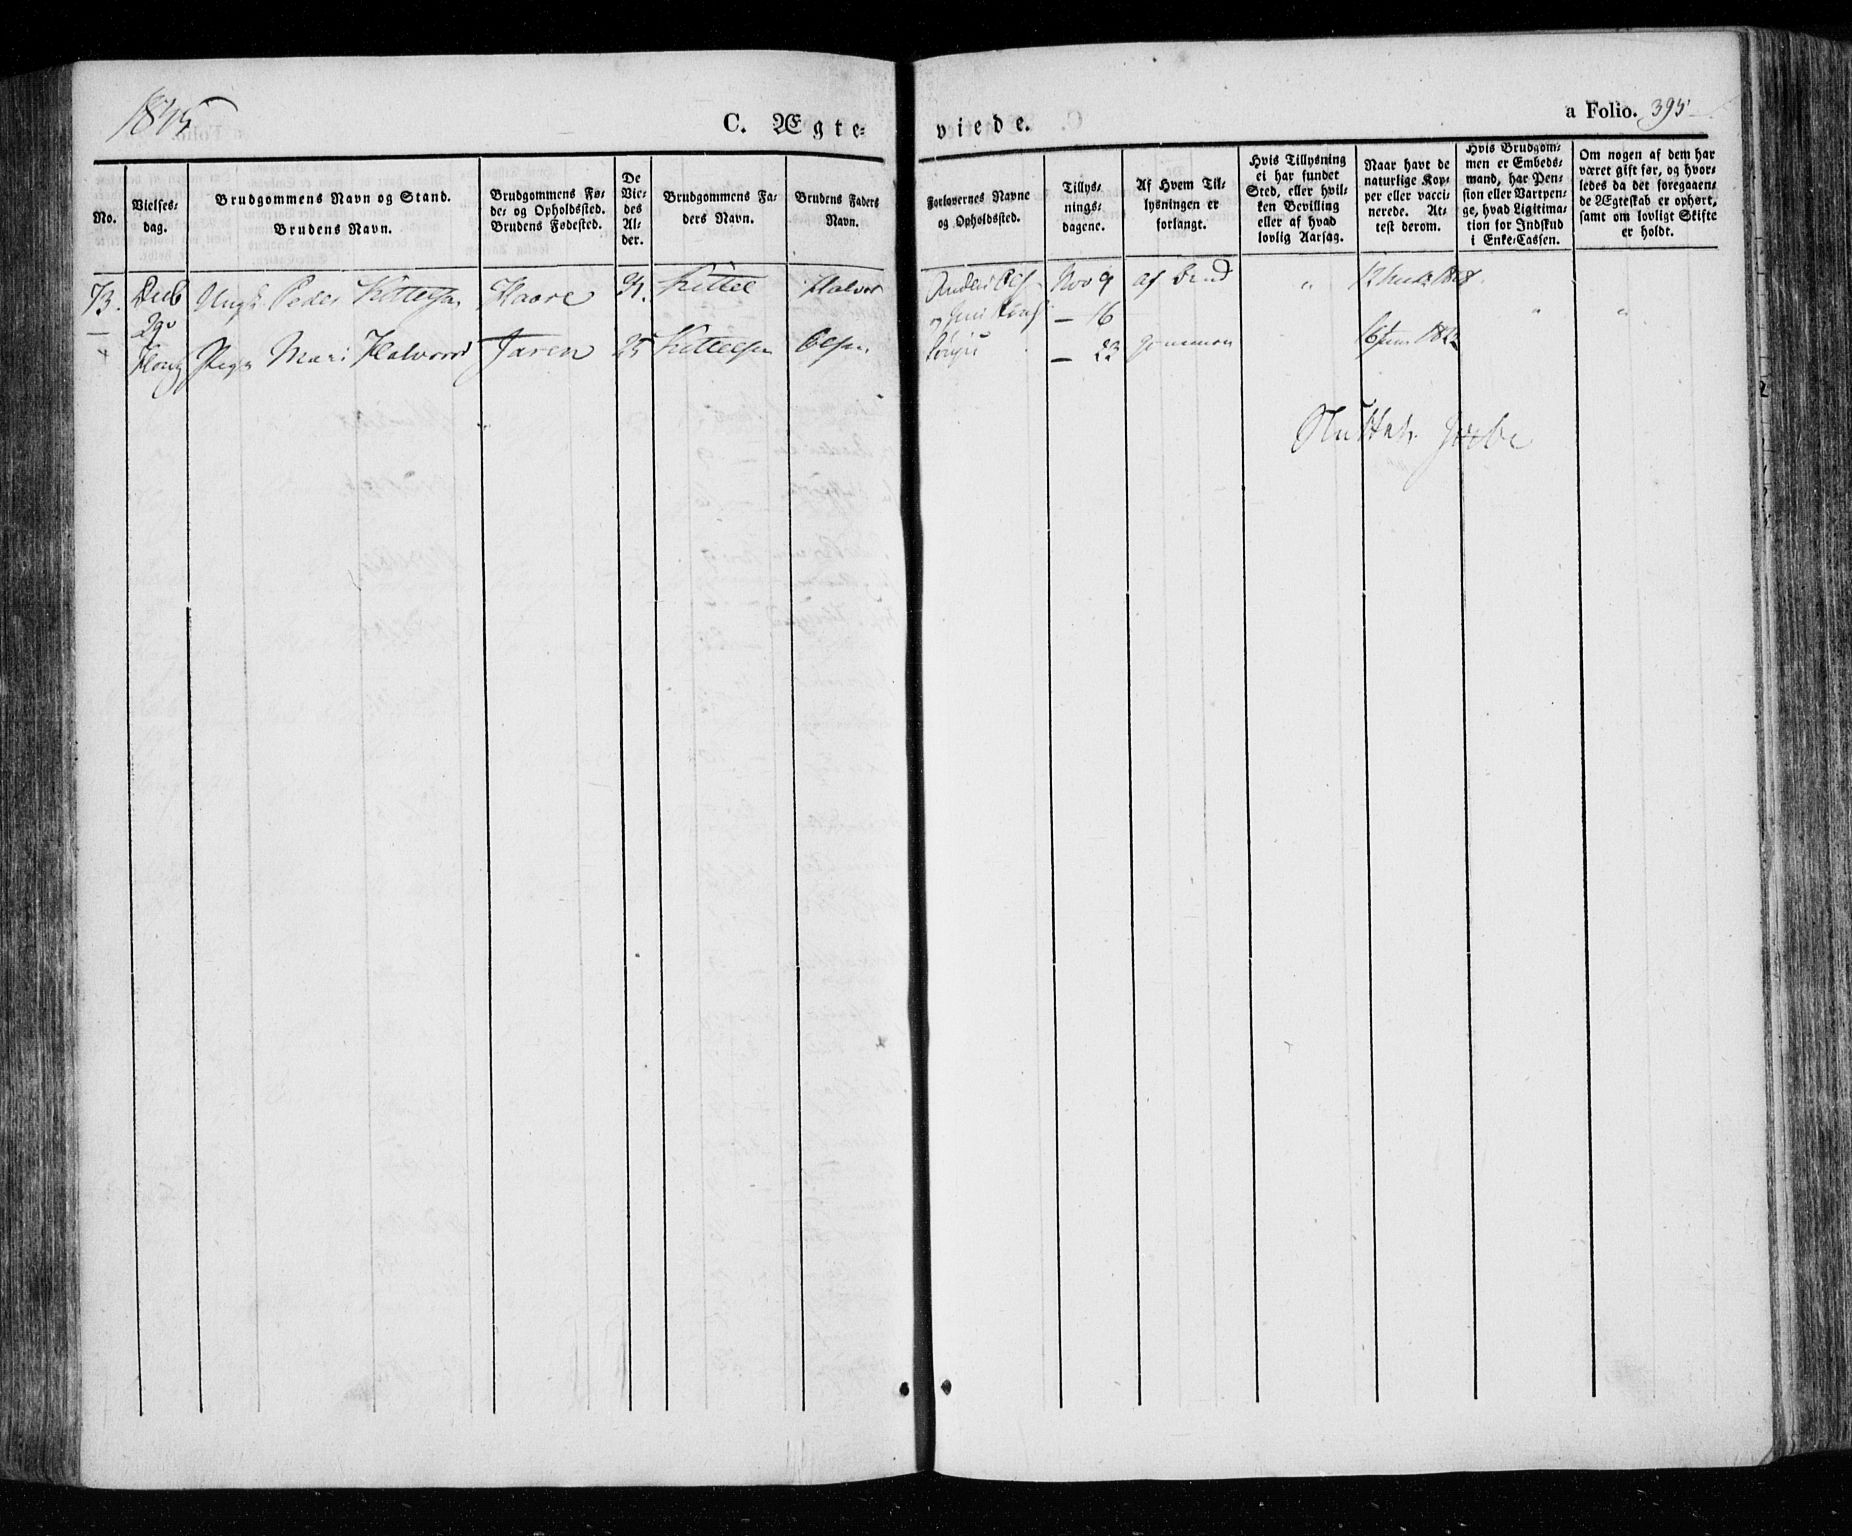 1845
C. Ægte-
viede.
a Folio. 395
No.
Vielses-
dag.
Brudgommens Navn og Stand.
Brudens Navn.
Brudgommens Fø-
de- og Opholdssted.
Brudens Fødested.
De
Vie-
des
Al-
der.
Brudgommens Fa-
ders Navn.
Brudens Faders
Navn.
Forlovernes Navne
og Opholdssted.
Tillys-
nings-
dagene.
Af Hvem Til-
lysningen er
forlangt.
Hvis Tillysning
ei har fundet
Sted, eller hvil-
ken Bevilling
eller af hvad
lovlig Aarsag.
Naar havt de
naturlige Kop-
per eller vacci-
nerede. At-
test derom.
Hvis Brudgom-
men er Embeds-
mand, har Pen-
sion eller Vartpen-
ge, hvad Ligitima-
tion for Indskud
i Enke-Cassen.
Om nogen af dem har
været gift før, og hvor-
ledes da det foregaaen-
de Ægteskab er ophørt,
samt om lovligt Skifte
er holdt.
73. Decb Ungk. Peder Kittelsen Haare Kittel Halvor
Nov 9 af Brud
29
— 16
Pige Mari Halvorsd Jaren 25 Kittelsen Olsen
— 23